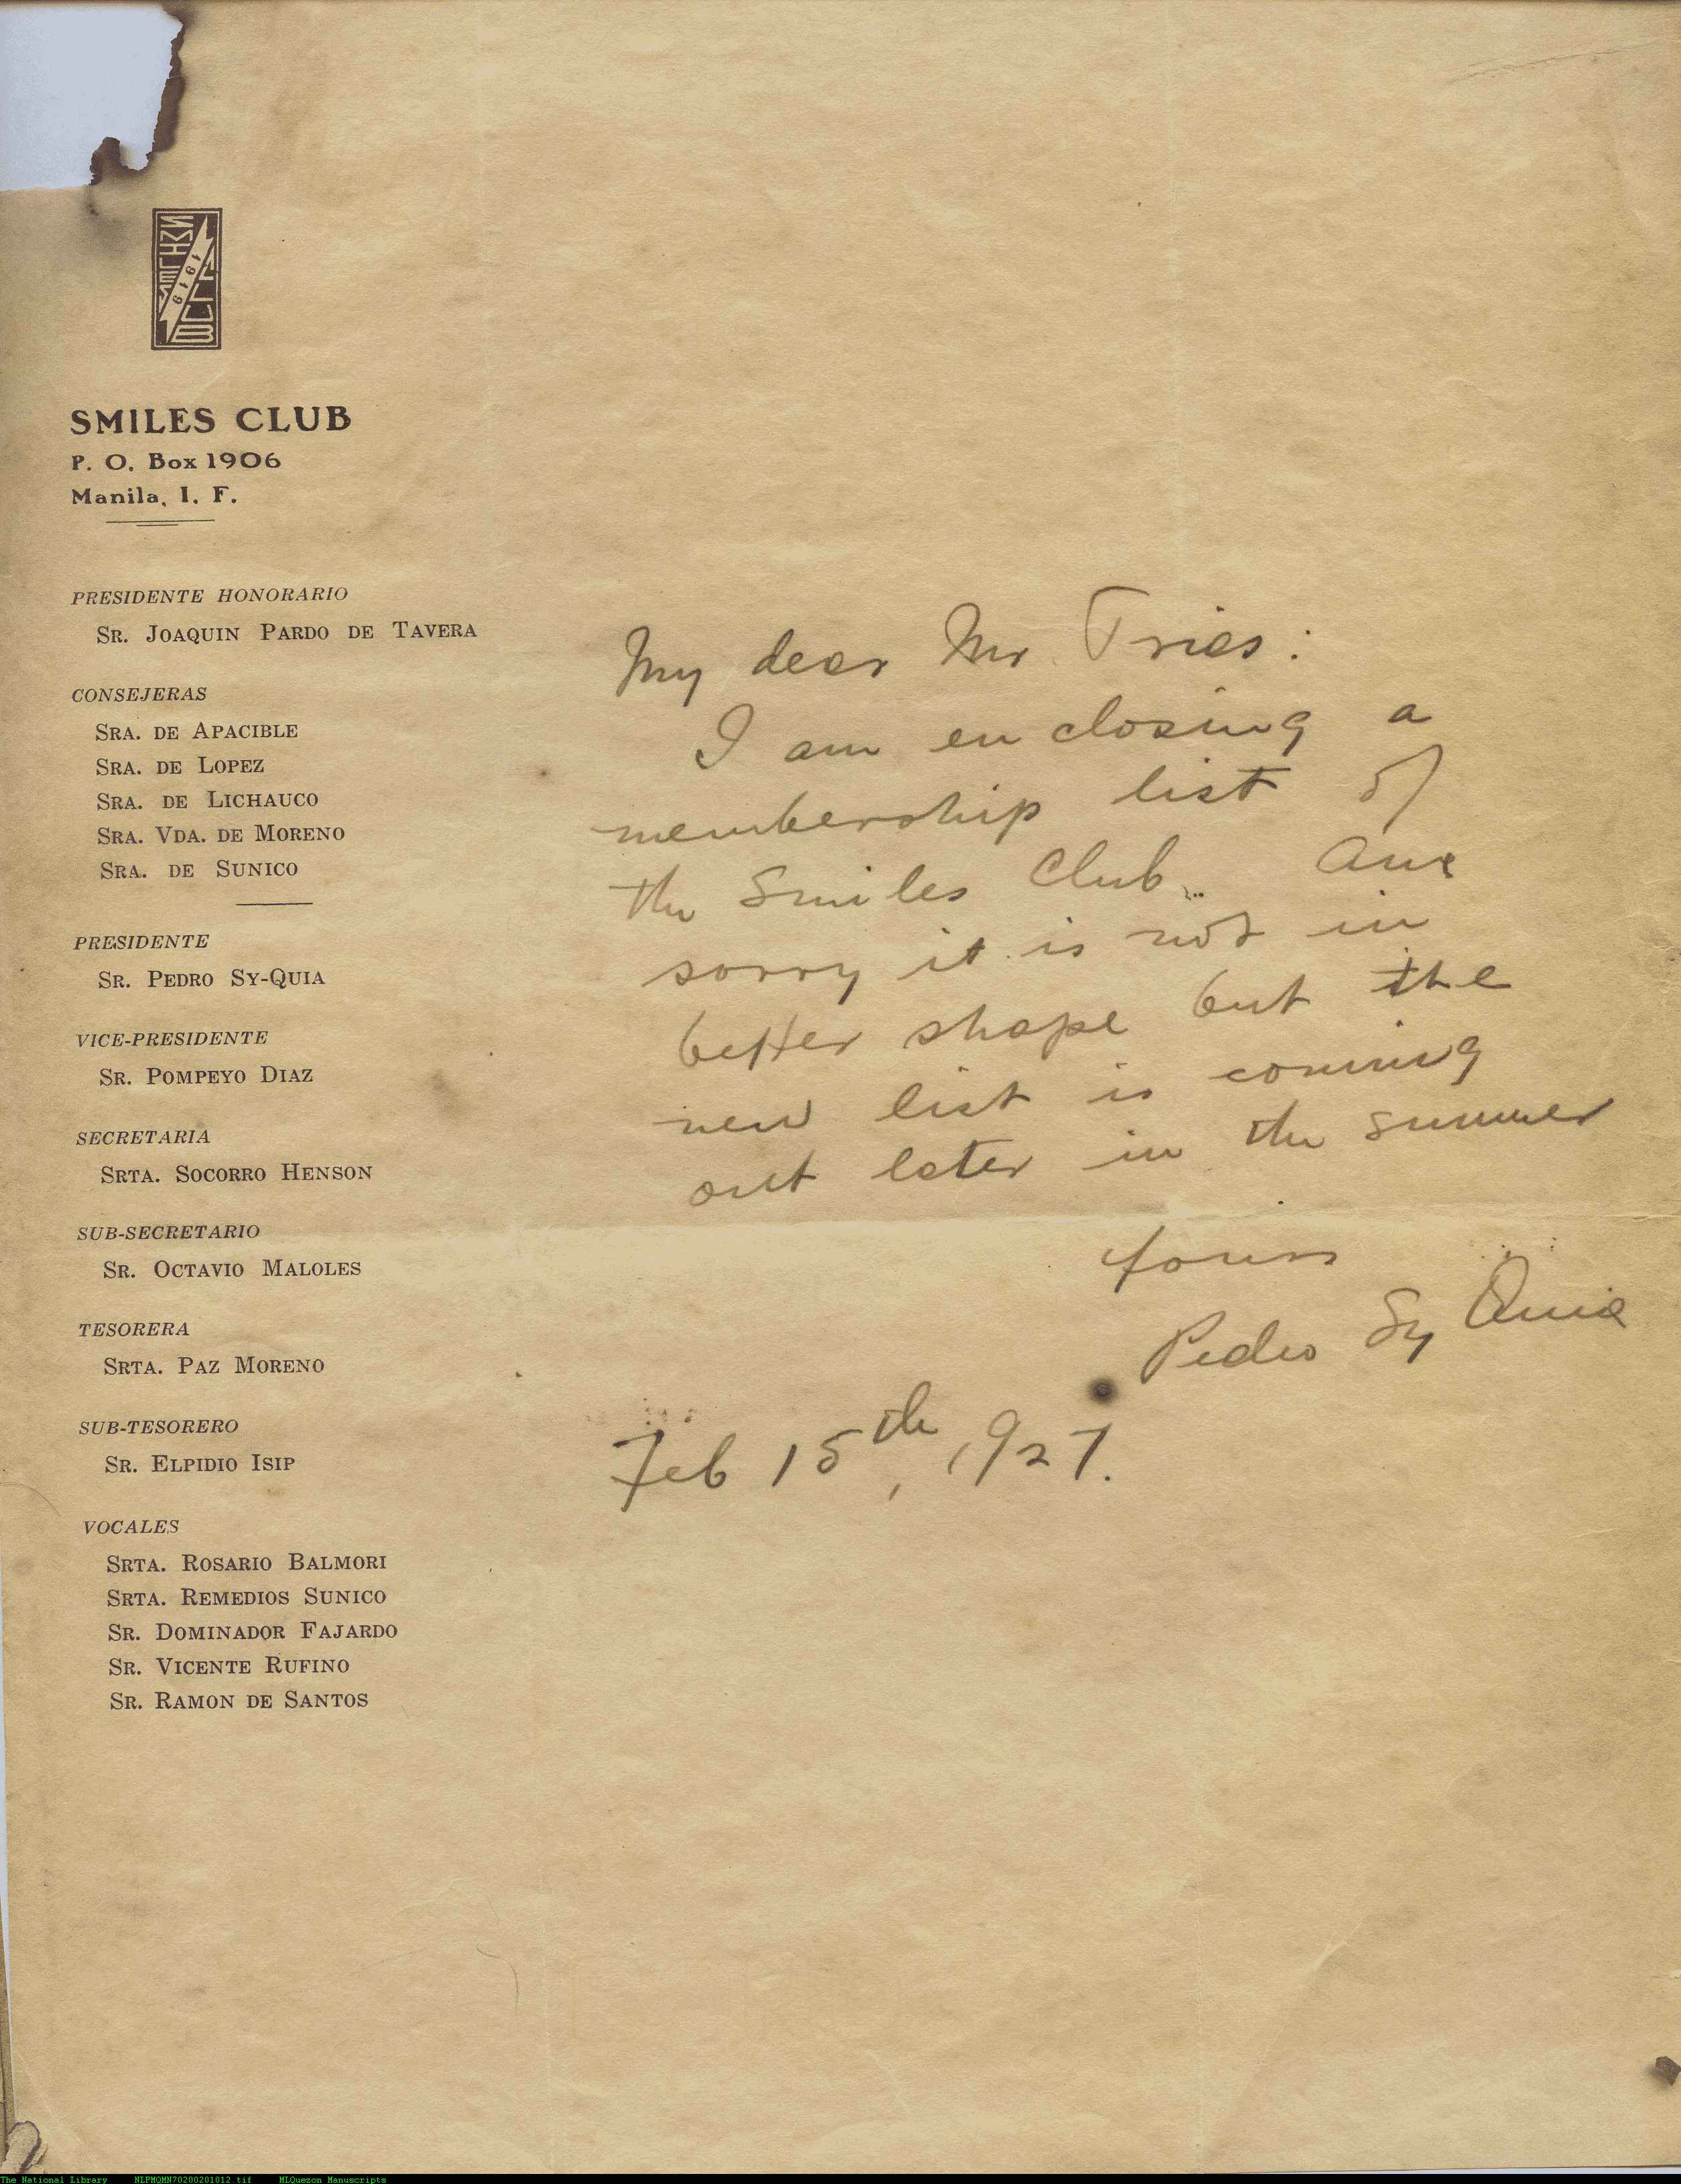 1919
SMILES CLUB
P. O. Box 1906
Manila, I. F.
PRESIDENTE HONORARIO
SR. JOAQUIN PARDO DE TAVERA
CONSEJERAS
SRA. DE APACIBLE
SRA. DE LOPEZ
SRA. DE LICHAUCO
SRA. VDA. DE MORENO
SRA. DE SUNICO
PRESIDENTE
SR. PEDRO SY-QUIA
VICE-PRESIDENTE
SR. POMPEYO DIAZ
SECRETARIA
SRTA. SOCORRO HENSON
SUB-SECRETARIO
SR. OCTAVIO MALOLES
TESORERA
SRTA. PAZ MORENO
SUB-TESORERO
SR. ELPIDIO ISIP
VOCALES
SRTA. ROSARIO BALMORI
SRTA. REMEDIOS SUNICO
SR. DOMINADOR FAJARDO
SR. VICENTE RUFINO
SR. RAMON DE SANTOS
My dear Mr. Trias:
I am enclosing a
membership list of
the Smiles Club. Am
sorry it is not in
better shape but the
new list is coming
out later in the summer
Yours
Pedro Sy Quia
Feb 15th, 1927.
The National Library NLPMQMN70200201012.tif MLQuezon Manuscripts